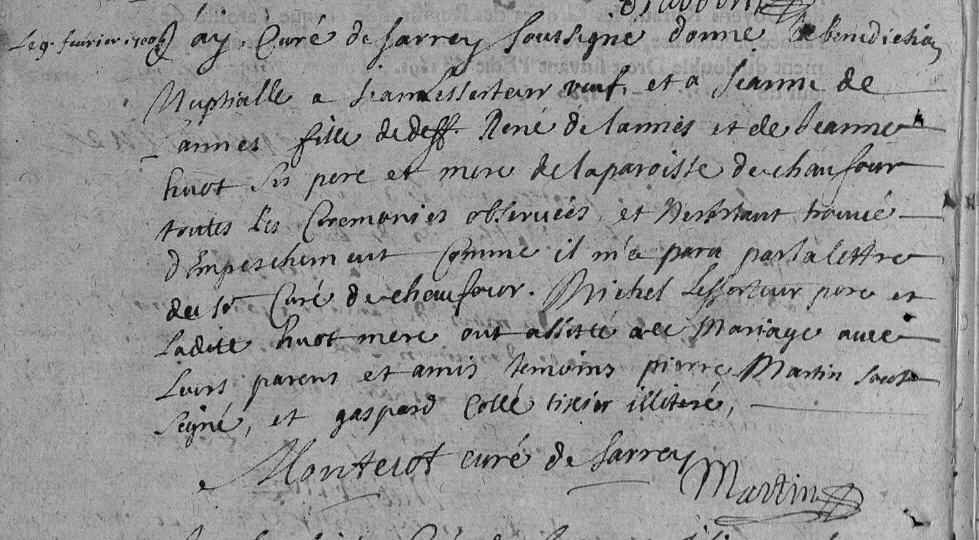 Le 9. fevrier 1706 J ay Curé de Sarrey soussigné donné la benediction
Nuptialle a Jean lesserteur veuf, et a Jeanne de
Lannes fille de deff. René de lannes et de Jeanne
huot ses pere et mere de la paroisse de chaufour
toutes les Ceremonies observées, et Nestant trouvé
d'Empeschement comme il m'a paru par la lettre
du Sr Curé de chaufour. Michel Lesserteur pere et
ladite huot mere ont assisté a ce Mariage avec
Leurs parens et amis temoins pierre Martin sous
signé, et gaspard Collé tixier illiteré,
Montesot curé de Sarrey
Martin